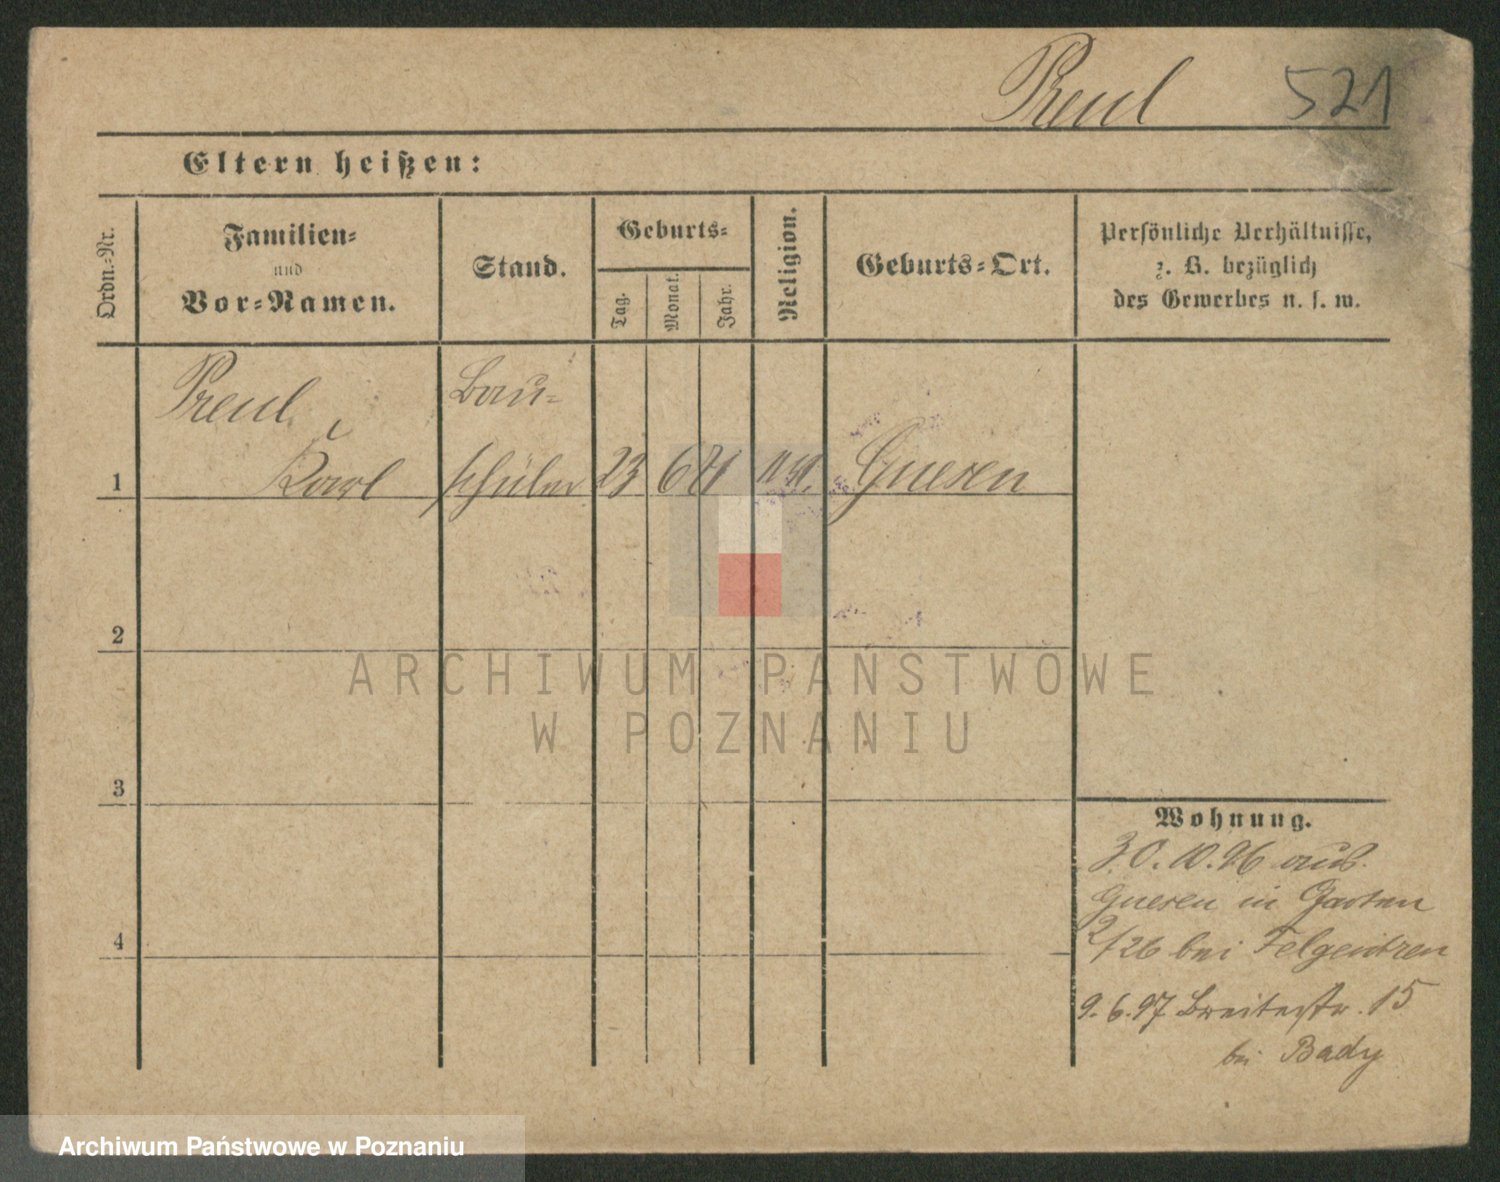 Preul 521
Eltern heißen:
Ordn.-Nr.
Familien-
und
Vor-Namen.
Stand.
Geburts-
Tag.
Monat.
Jahr.
Religion.
Geburts-Ort.
Persönliche Verhältnisse,
z. B. bezüglich
des Gewerbes u. s. w.
Preul,
Bau-
1 Karl schüler 23 6 Gnesen
2
3
4
Wohnung.
30.10.96 aus
Gnesen in Garten
2/26 bei
9.6.97 Breitestr. 15
bei Bady
ARCHIWUM PAŃSTWOWE
W POZNANIU
Archiwum Państwowe w Poznaniu